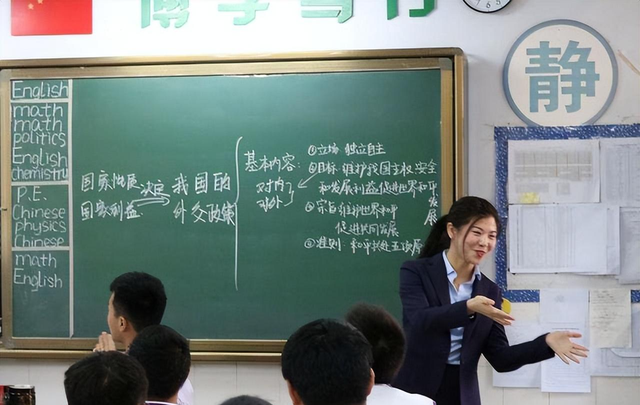 博学笃行
静
English
math
math
politics
English
chemistry
P.E.
Chinese
physics
Chinese
math
English
国家性质
国家利益
决定
我国的
外交政策
基本内容:
对内
对外
①立场 独立自主
②目标 维护我国主权安全
和发展利益促进世界和平
发展
③宗旨维护世界和平
促进共同发展
④准则: 和平共处五项